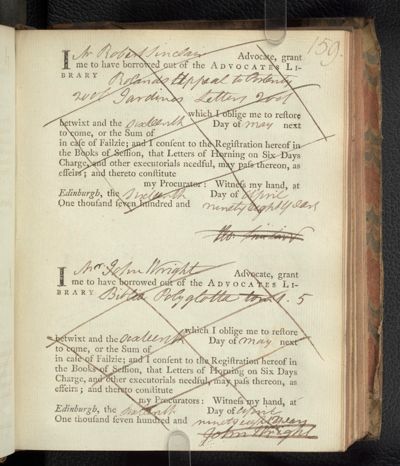 159.
I Mr Robert Sinclair Advocate, grant
me to have borrowed out of the ADVOCATES LI-
BRARY Rolands Appeal to Posterity
Jardines Letters
which I oblige me to restore
betwixt and the Sixteenth Day of May next
to come, or the Sum of
in case of Failzie; and I consent to the Registration hereof in
the Books of Session, that Letters of Horning on Six Days
Charge, and other executorials needful, may pass thereon, as
effeirs; and thereto constitute
my Procurator: Witness my hand, at
Edinburgh, the Sixteenth Day of April
One thousand seven hundred and ninety eight years
I Mr John Wright Advocate, grant
me to have borrowed out of the ADVOCATES LI-
BRARY Biblia Polyglotta tom. 1. 5
which I oblige me to restore
betwixt and the Sixteenth Day of May next
to come, or the Sum of
in case of Failzie; and I consent to the Registration hereof in
the Books of Session, that Letters of Horning on Six Days
Charge, and other executorials needful, may pass thereon, as
effeirs; and thereto constitute
my Procurators: Witness my hand, at
Edinburgh, the Sixteenth Day of April
One thousand seven hundred and ninety eight years
John Wright